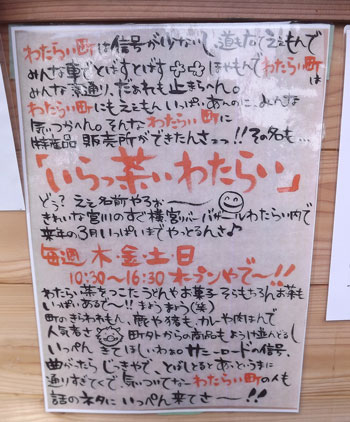 わたらい町は信号が少ないし道も広てええもんで
みんな車でとばすとばす ほやもんでわたらい町は
みんな素通り、だぁれも止まらへん。
わたらい町にもええもんいっぱいあんのに、みんな
気いつかへん。そんなわたらい町に
特産品販売所ができたんさっっ!!その名も…
「いらっ茶いわたらい」
どう?ええ名前やろぉ〜
きれいな宮川のすぐ横宮リバーパークわたらい内で
来年の3月いっぱいまでやっとるんさ♪
毎週 木・金・土・日
10:30〜16:30 オープンやで〜!!
わたらい茶をつこたうどんやお菓子 そらもちろんお茶も
いっぱいあるで〜!! まよう まよう(笑)
町のきらわれもん、鹿や猪も、カレーや肉まんで
人気者さ 町外からの商品もようけ並んどるし
いっぺん きてほしいわぁ。サニーロードの信号、
曲がったら じっきやで、とばしとると あっというまに
通りすぎてくで、気いつけてなー わたらい町の人も
話のネタに いっぺん来てさ〜!!